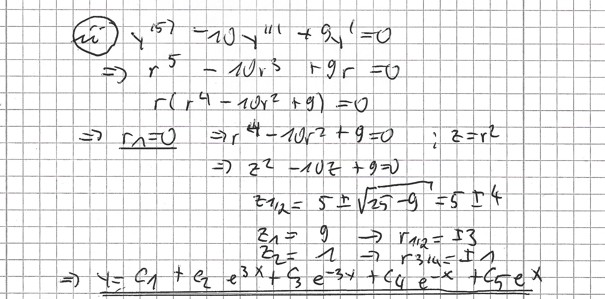 iii y⁽⁵⁾ -10y''' + 9y' = 0
=> r⁵ - 10r³ + 9r = 0
r(r⁴ - 10r² + 9) = 0
=> r₁=0 => r⁴ - 10r² + 9 = 0 ; z = r²
=> z² - 10z + 9 = 0
z₁,₂ = 5 ± √(25-9) = 5 ± 4
z₁ = 9 → r₁,₂ = ±3
z₂ = 1 → r₃,₄ = ±1
=> y = C₁ + C₂ e³ˣ + C₃ e⁻³ˣ + C₄ e⁻ˣ + C₅ eˣ